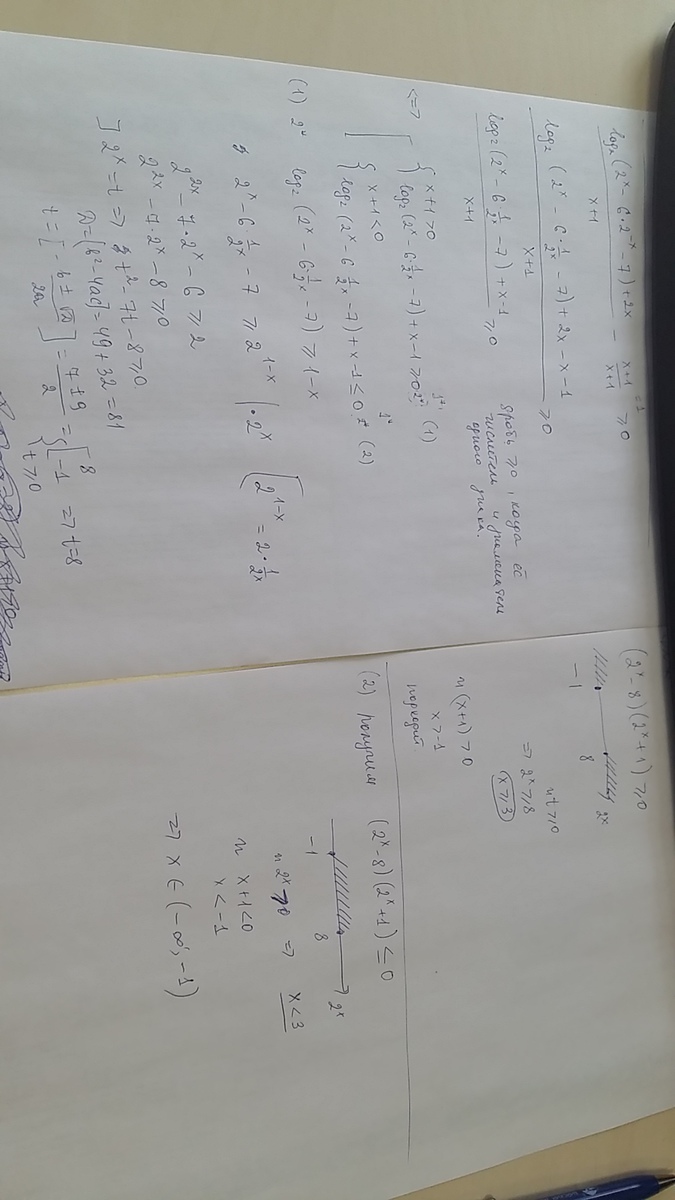 log₂(2ˣ - 6·2⁻ˣ - 7) + 2x / x+1 - x+1 / x+1 = 1 ≥ 0
log₂(2ˣ - 6·1/2ˣ - 7) + 2x - x - 1 / x+1 ≥ 0
log₂(2ˣ - 6 1/2ˣ - 7) + x - 1 / x+1 ≥ 0
дробь ≥ 0, когда её
числитель и знаменатель
одного знака.
<=> [ { x+1 > 0
log₂(2ˣ - 6 1/2ˣ - 7) + x - 1 ≥ 0 (1)
{ x+1 < 0
log₂(2ˣ - 6 1/2ˣ - 7) + x - 1 ≤ 0 (2)
(1) log₂(2ˣ - 6·1/2ˣ - 7) ≥ 1-x
2ˣ - 6·1/2ˣ - 7 ≥ 2¹⁻ˣ | · 2ˣ (2¹⁻ˣ = 2·1/2ˣ
2²ˣ - 7·2ˣ - 6 ≥ 2
2²ˣ - 7·2ˣ - 8 ≥ 0
] 2ˣ = t => t² - 7t - 8 ≥ 0
D = [b² - 4ac] = 49 + 32 = 81
t = [-b ± √D / 2a] = 7 ± 9 / 2 = { [ 8 -1 t ≥ 0 => t = 8
(2ˣ - 8)(2ˣ + 1) ≥ 0
-1 8 2ˣ
и t ≥ 0
=> 2ˣ ≥ 8
x ≥ 3
и (x+1) > 0
x > -1
подходит
(2) получим (2ˣ - 8)(2ˣ + 1) ≤ 0
-1 8 2ˣ
и 2ˣ > 0 => x < 3
и x+1 < 0
x < -1
=> x ∈ (-∞; -1)